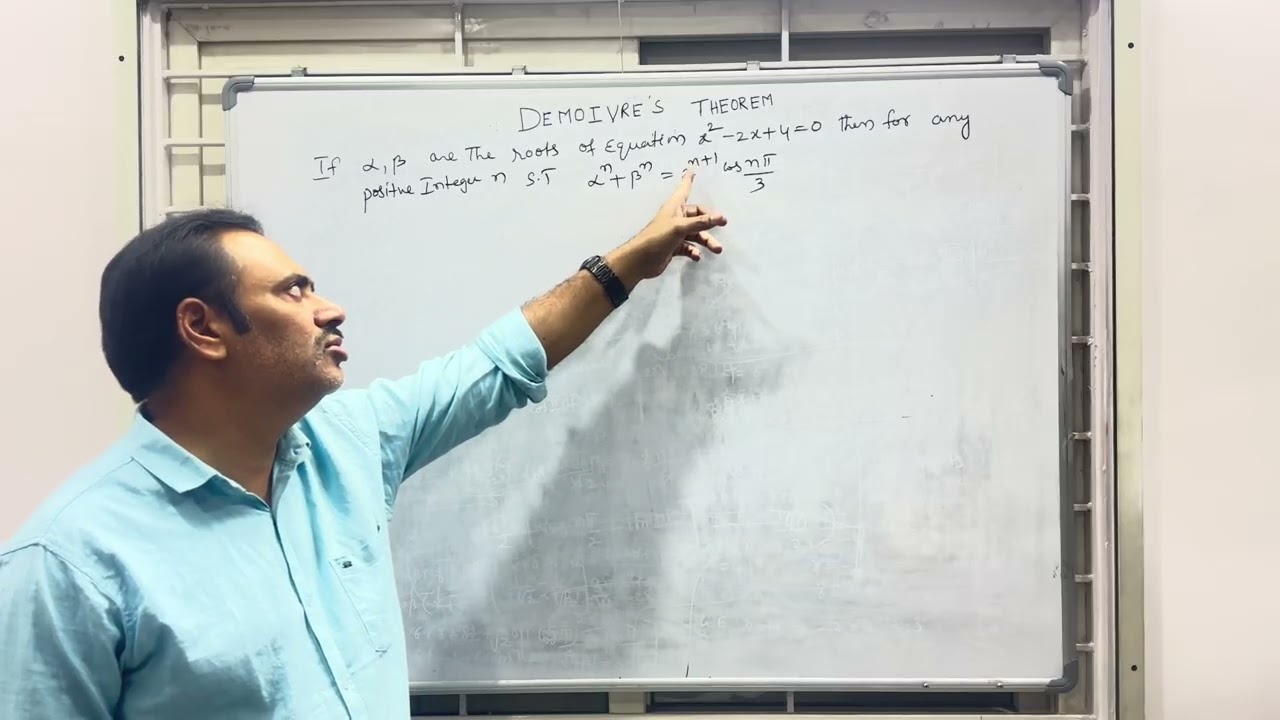 DEMOIVRE'S THEOREM
If α, β are The roots of Equation x² - 2x + 4 = 0 then for any
positive Integer n S.T αⁿ + βⁿ = ⁿ⁺¹ cos nπ/3